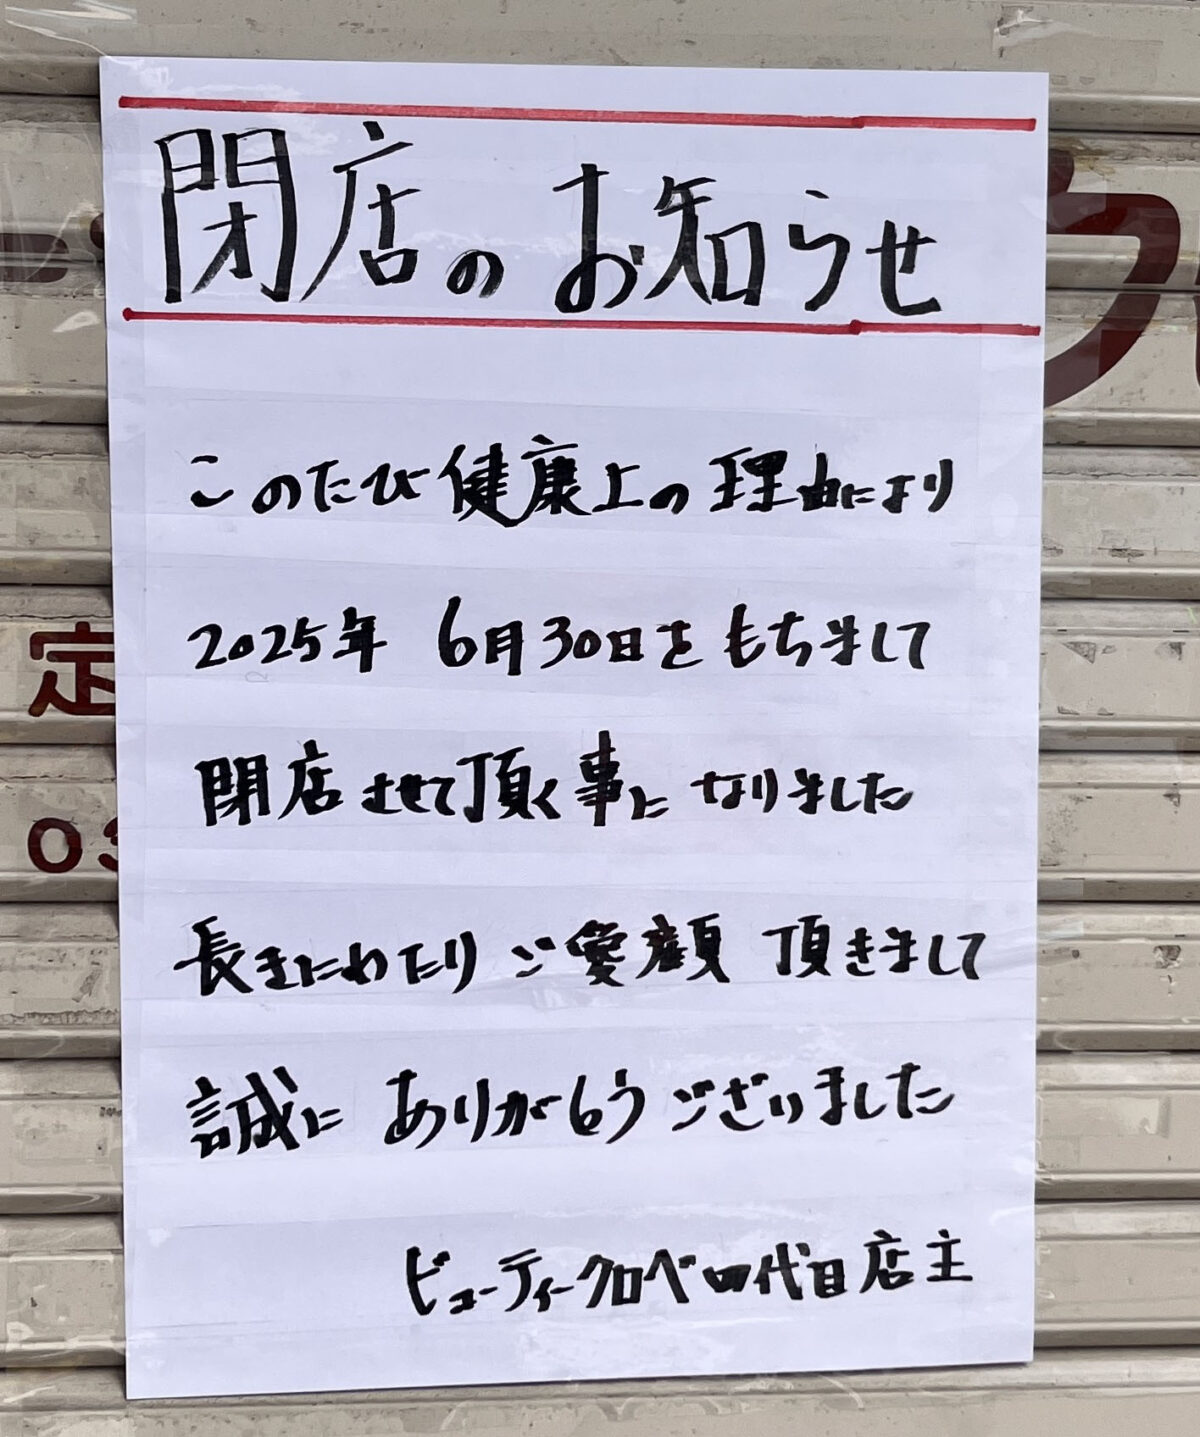 閉店のお知らせ
このたび健康上の理由により
2025年 6月30日をもちまして
閉店させて頂く事になりました
長きにわたりご愛顧 頂きまして
誠に ありがとうございました
ビューティークロベ四代目店主
定
03